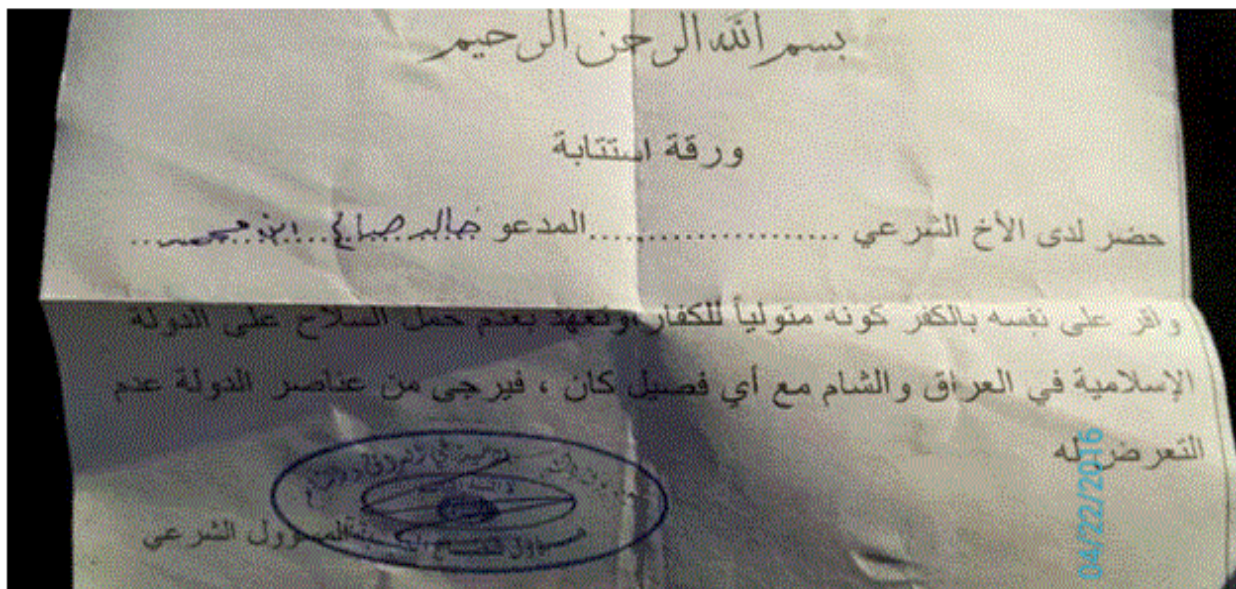 بسم الله الرحمن الرحيم
ورقة استتابة
حضر لدى الأخ الشرعي .....................المدعو خالد صالح
واقر على نفسه بالكفر كونه متولياً للكفار ،وتعهد بعدم حمل السلاح على الدولة
الإسلامية في العراق والشام مع أي فصيل كان ، فيرجى من عناصر الدولة عدم
التعرض له
المسؤول الشرعي
04/22/2016